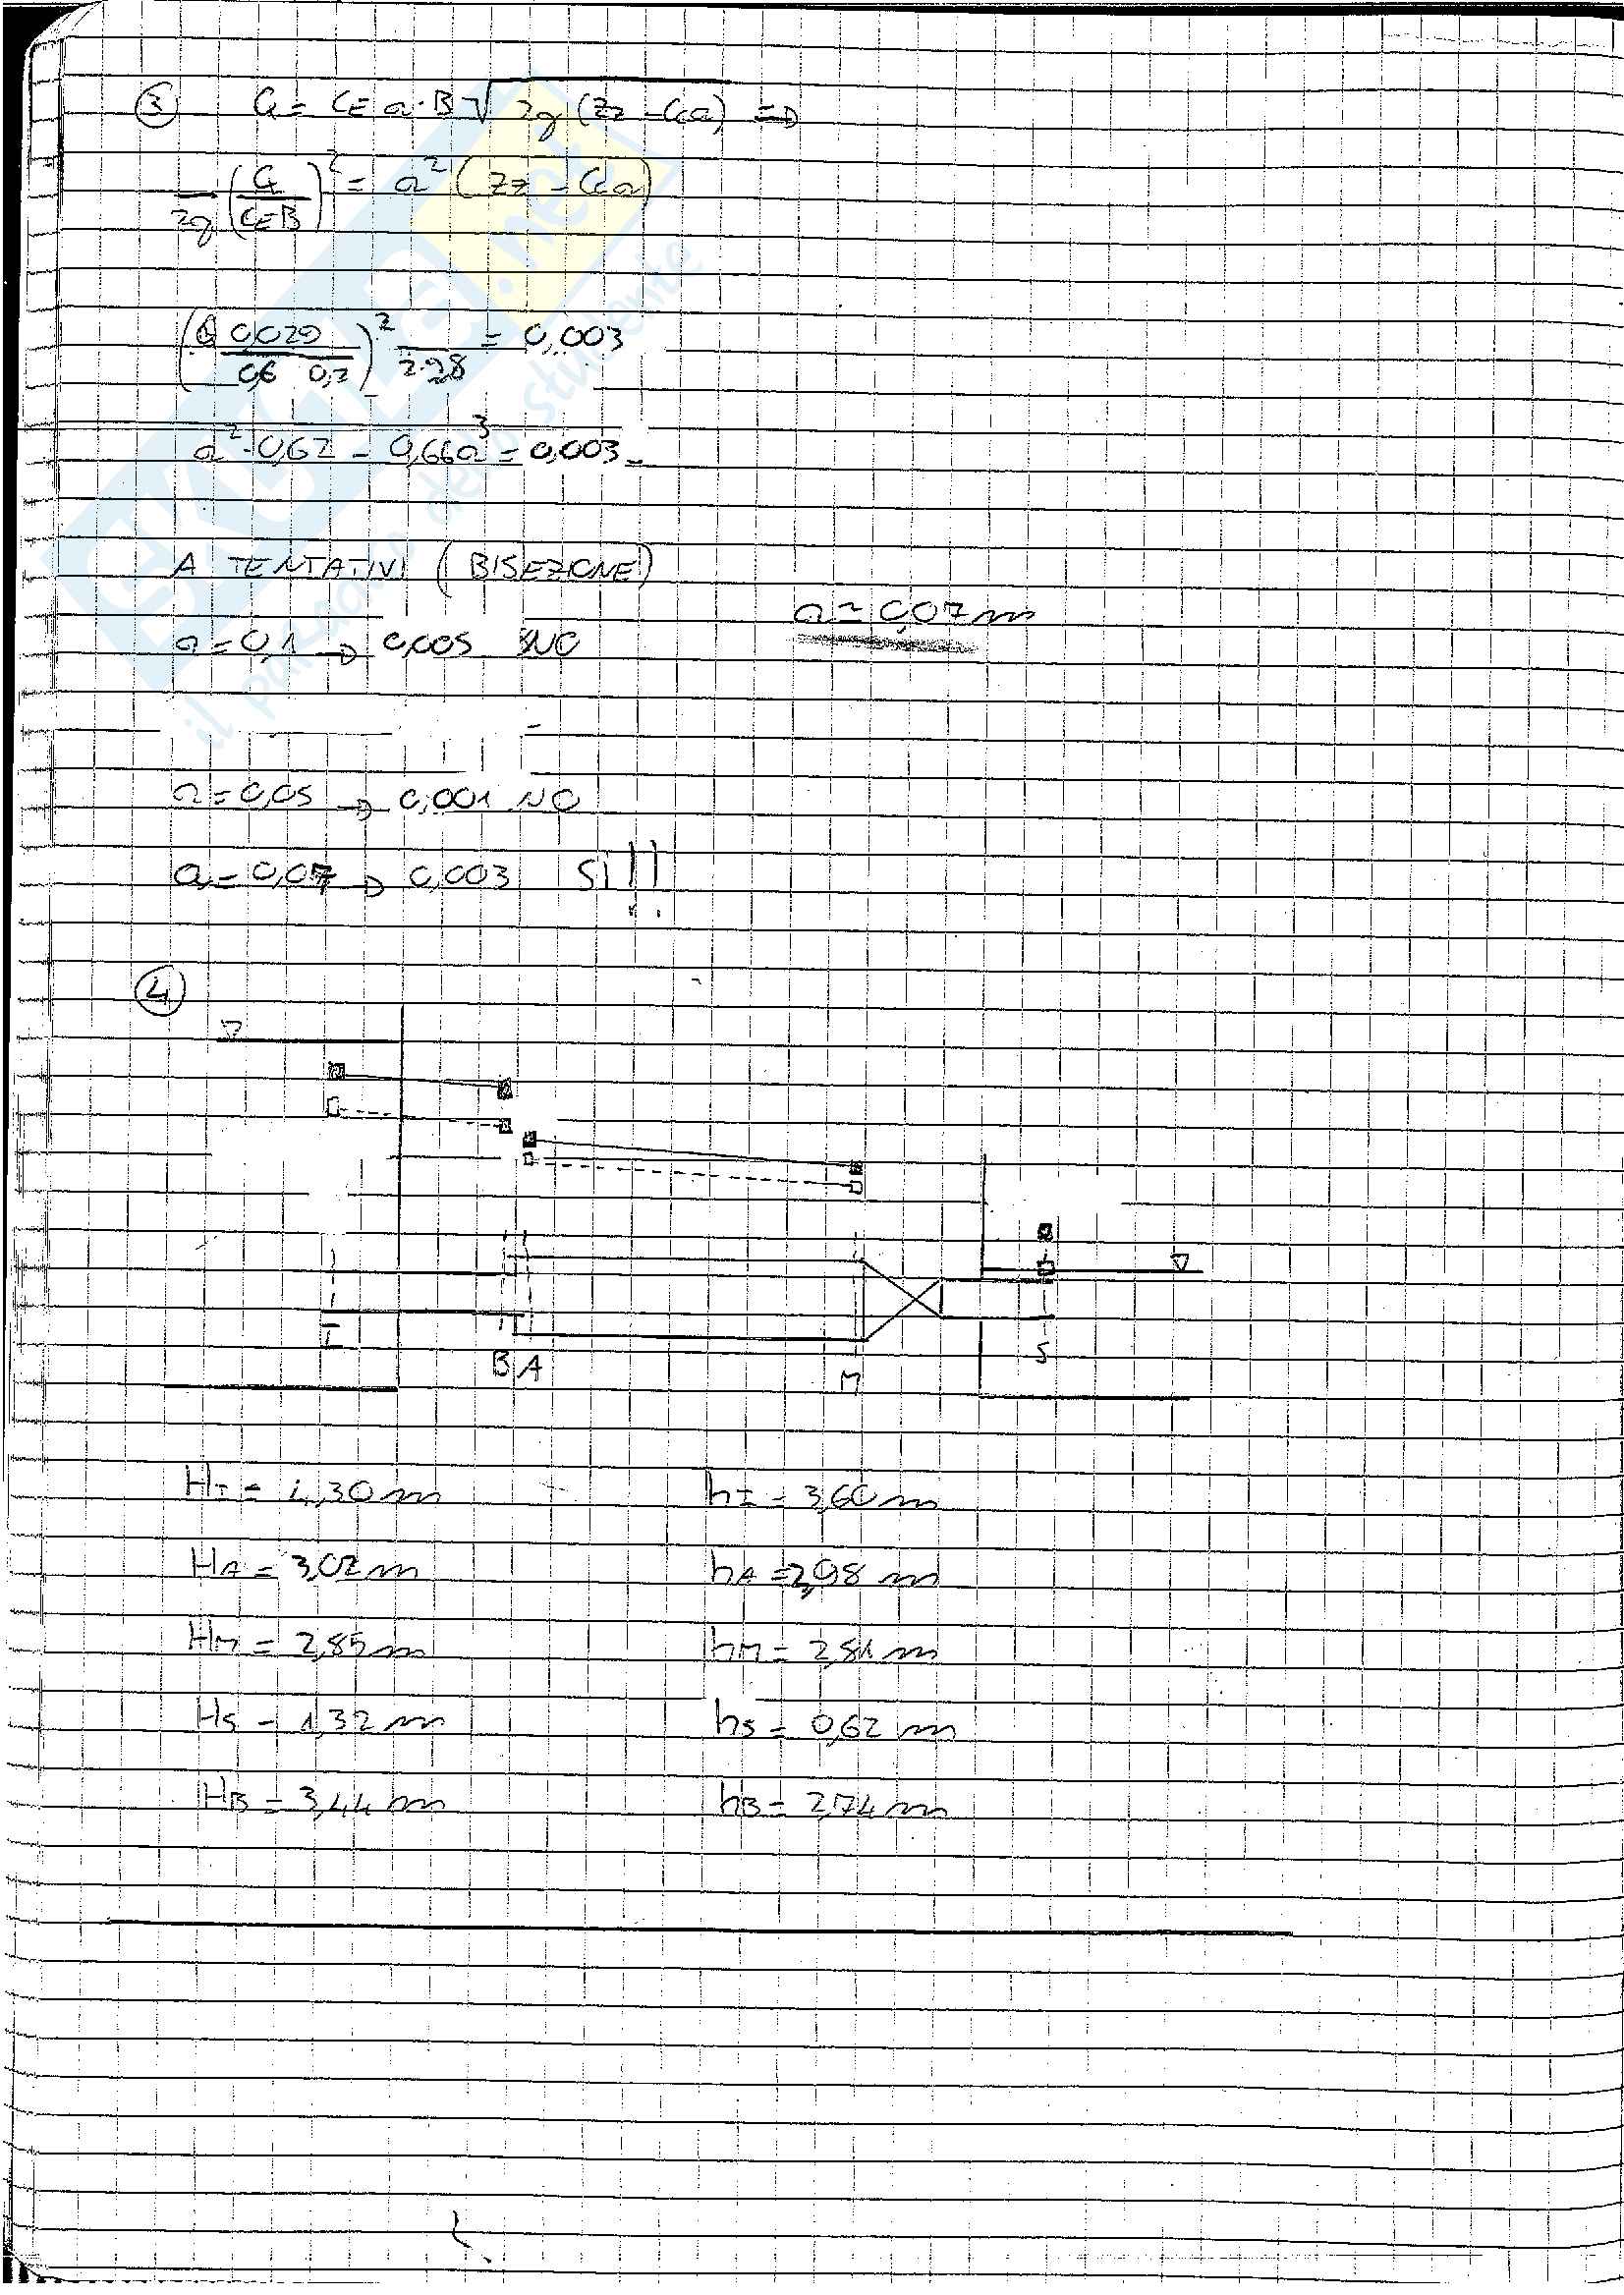 ③ Q = CE a·B √2g (z2 - Cc a) ⇒
1/2g (Q/CEB)² = a² (z2 - Cc a)
(0,029/0,6 0,2)² 1/2·9,8 = 0,003
a²·0,62 - 0,66a³ = 0,003
A TENTATIVI (BISEZIONE)
a = 0,07 m
a = 0,1 → 0,005 NO
a = 0,05 → 0,001 NO
a = 0,07 → 0,003 SÌ!!
④
I B A M S
HI = 4,30 m hI = 3,60 m
HA = 3,02 m hA = 2,98 m
HM = 2,85 m hM = 2,81 m
HS = 1,32 m hS = 0,62 m
HB = 3,44 m hB = 2,74 m
SKUOLA.net
il paradiso dello studente